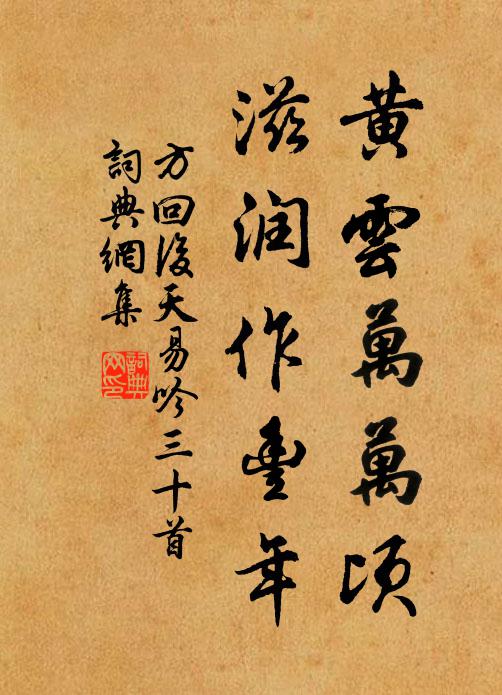 黄雲萬萬頃
滋润作豊年
方回後天易吟三十首
詞典網集
詞典網印